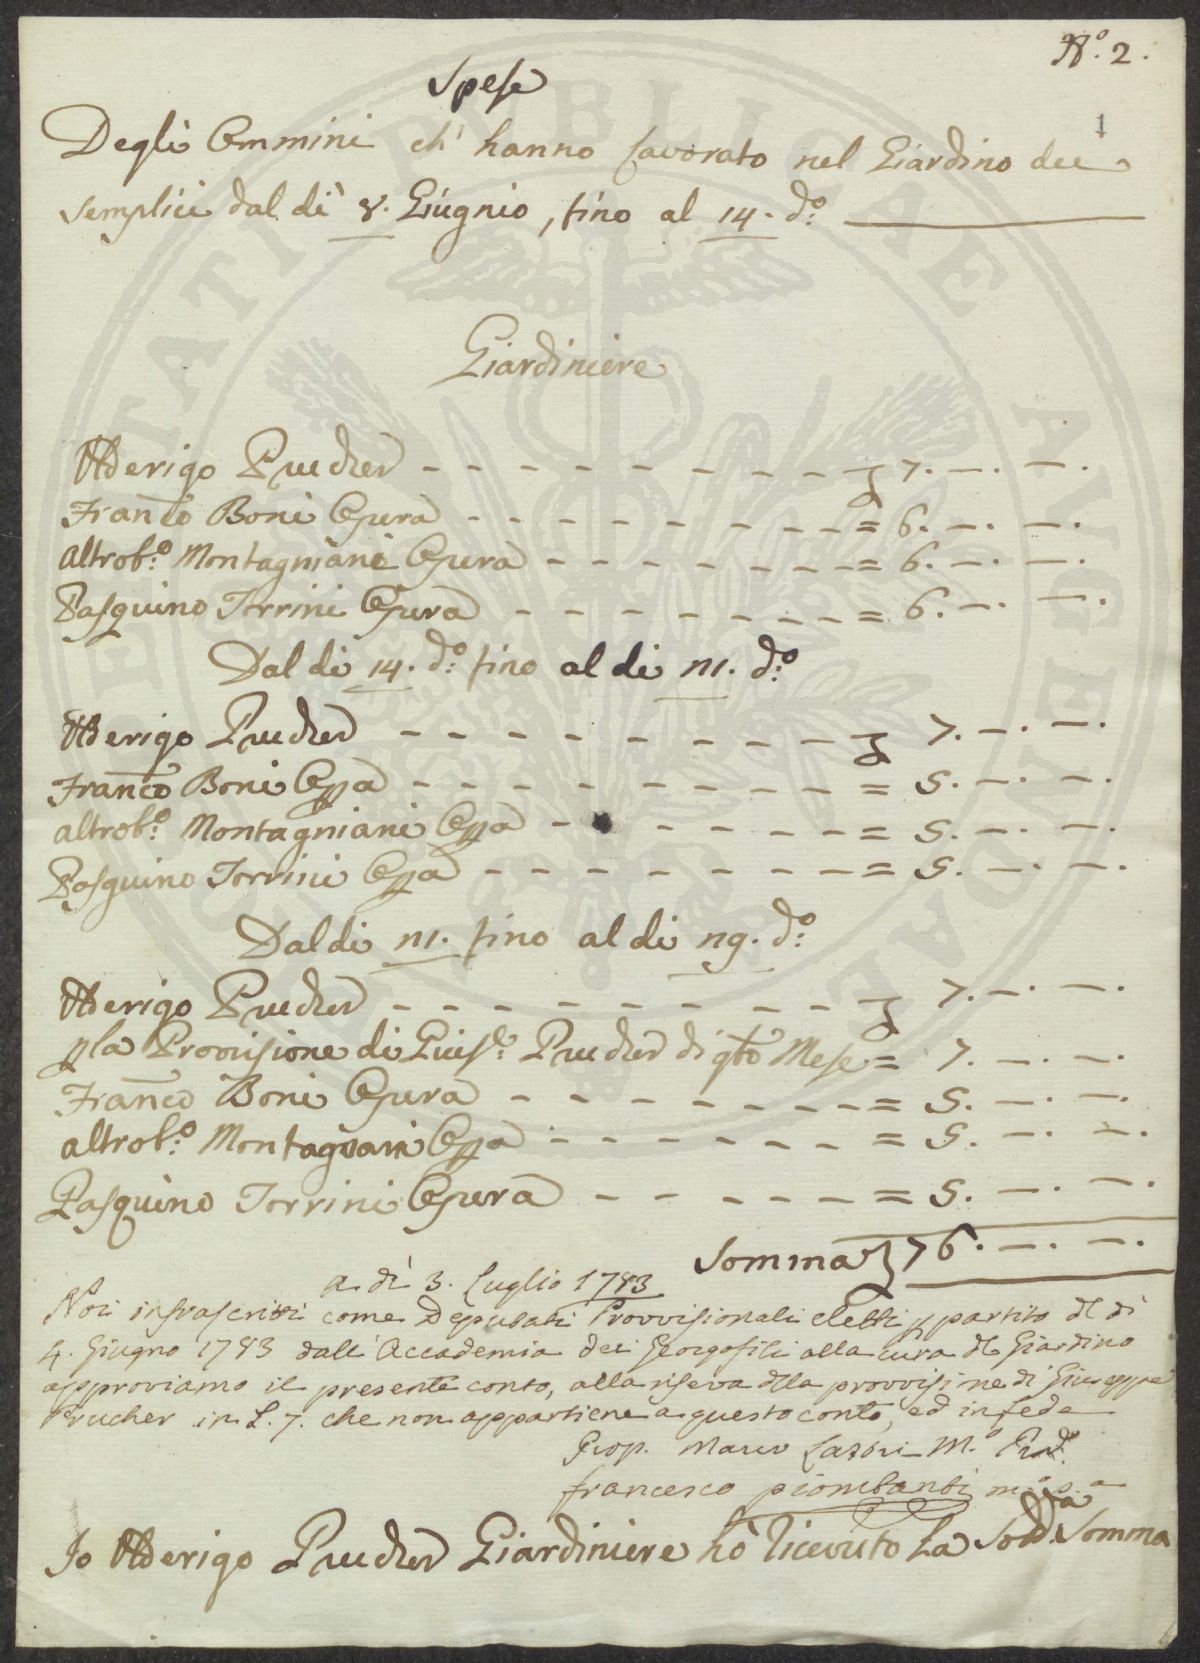 N.º 2.
1
Spese
Degli Ommini ch' hanno lavorato nel Giardino dei
Semplici dal di 8. Giugnio, fino al 14. d.º
Giardiniere
Aderigo Prucher - - - - - - - - - - £ 7. —. —.
Franco Boni Opera - - - - - - - - - = 6. —. —.
Altrob.º Montagniani Opera - - - - - - - = 6. —. —.
Pasquino Torrini Opera - - - - - - - = 6. —. —.
Dal di 14. d.º fino al di 21. d.º
Aderigo Prucher - - - - - - - - - - £ 7. —. —.
Franco Boni Oppa - - - - - - - - - = 5. —. —.
altrob.º Montagniani Oppa - - - - - - = 5. —. —.
Pasquino Torrini Oppa - - - - - - - - = 5. —. —.
Dal di 21. fino al di 29. d.º
Aderigo Prucher - - - - - - - - - £ 7. —. —.
pla Provvisione di Prucher di qto Mese = 7. —. —.
Franco Boni Opera - - - - - - - - = 5. —. —.
altrob.º Montagnani Oppa - - - - - - - = 5. —. —.
Pasquino Torrini Opera - - - - - = 5. —. —.
Somma £ 76. —. —.
A dì 3. Luglio 1783
Noi infrascritti come Deputati Provvisionali eletti p partito dl dì
4. Giugno 1783 dall' Accademia dei Georgofili alla cura dl Giardino
approviamo il presente conto, alla riserva dlla provvisione di Giuseppe
Prucher in L. 7. che non appartiene a questo conto, ed in fede
Prop. Marco Lastri M.º
francesco piombanti m.º p.a
Io Aderigo Prucher Giardiniere hò ricevuto La Sodd.a Somma
SOCIETATI PUBLICAE AUGENDAE